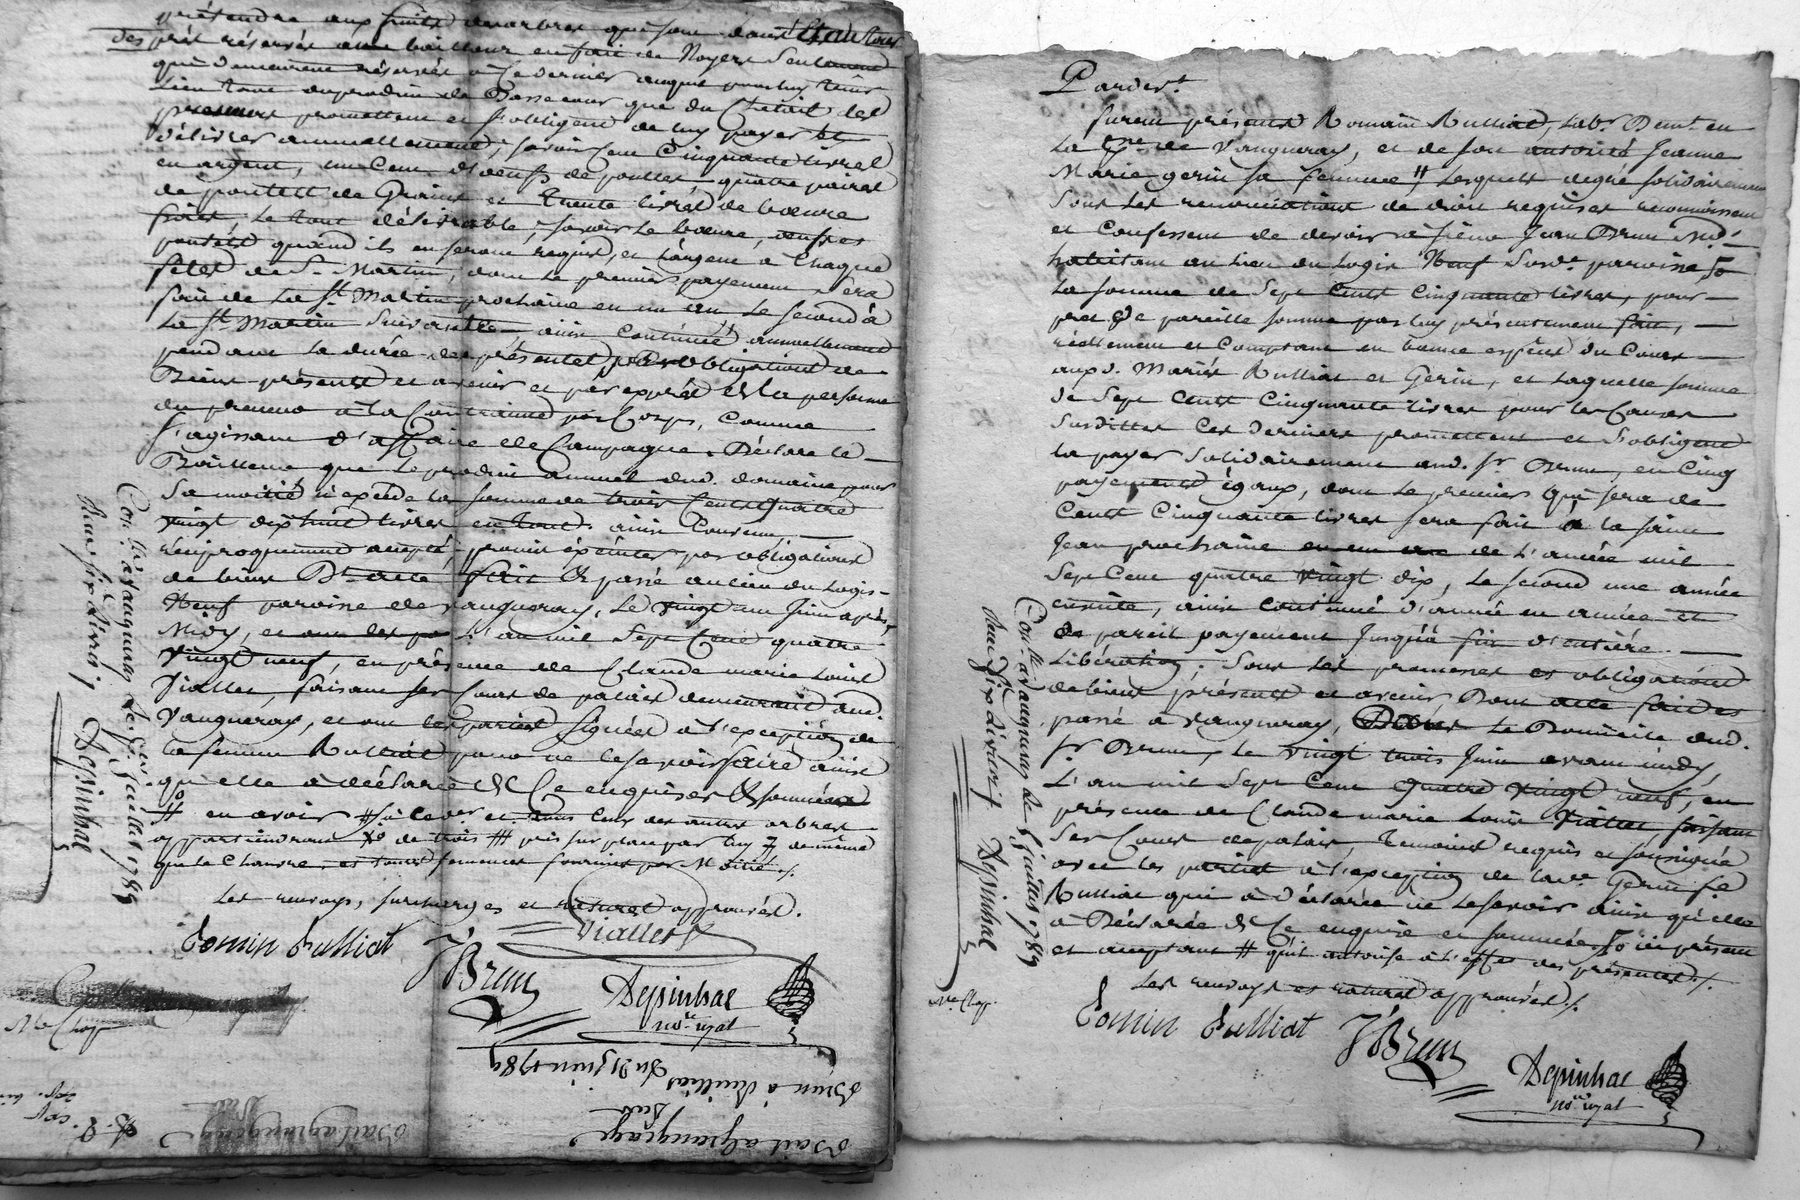 prétendre aux fruits des arbres qui sont dans
des prés réservés aud. bailleur en fait de Noyers Seulement
qui demeurent réservés à ce dernier auquel pour luy tenir
Lieu tant du produit de Basse cour que du Betail les
preneurs promettent et s'obligent de luy payer et
délivrer annuellement, savoir Cent Cinquante livres
en argent, un Cent d'oeufs de poulles quatre paires
de poulets de Grains et Trente livres de beurre
frais, le tout délivrable, savoir le beurre, oeufs et
poulets quand ils en seront requis, et l'argent à Chaque
fêtes de St Martin, dont le premier payement sera
fait de La St Martin prochaine en un an Le second à
La St Martin Suivante ainsi continué annuellement
pendant la durée des présentes par obligations de
Biens présents et avenir et par exprès de la personne
du preneur à la Contrainte par Corps, Comme
s'agissant d'affaire de Campagne. Déclare le
Bailleur que le produit annuel dud. domaine pour
Sa moitié n'excède la somme de trois Cents Quatre
vingt dix huit livres en tout, ainsi Convenu,
réciproquement accepté, promis exécuter par obligations
de biens Dt acte fait & passé au lieu du Logis
Neuf paroisse de vaugneray, Le vingt un Juin après
Midy, L'an mil Sept Cent quatre
vingt neuf, en présence de Claude marie Louis
Viallet, faisant ses Cours de palais demeurant aud.
Vaugneray, et ont les parties signées à l'exception de
la femme Rulliat pour ne le savoir faire ainsi
qu'elle a déclaré de Ce enquise & sommée
en avoir et tous ceux des autres arbres
appartiendront de trois pris sur plan par luy de même
que le Chanvre, et toutes semences fournies par Moitié./.
Les renvoys, surcharges et ratures approuvés.
Viallet
Romin Rulliat
JBrun
Depinhac
nore royal
Conlle à Vaugneray Le six Juillet 1789
Reçu six Livres
Depinhac
Bail à Grangeage
Brun à Rulliat
Du 21 juin 1789
Pardevt
furent présents Romain Rulliat, Labr Demt en
La pse de Vaugneray, et de son autorité Jeanne
Marie gerin sa femme # Lesquels de gré solidairement
Sous les renonciations de droit requises reconnoissent
et Confessent de devoir à Sieur Jean Brun Md
habitant au Lieu du Logis Neuf Susde paroisse
La somme de Sept Cents Cinquante livres, pour
prêt de pareille somme par luy présentement fait,
réellement et Comptant en bonnes espèces du Cours
auxd. Mariés Rulliat et Gerin, et laquelle somme
de Sept Cents Cinquante livres pour les Causes
Susdittes Ces derniers promettent et s'obligent
la payer Solidairement aud. Sr Brun, en Cinq
payements égaux, dont Le premier qui sera de
Cent Cinquante livres sera fait à la saint
Jean prochaine de L'année mil
Sept Cent quatre vingt dix, Le second une année
ensuite, ainsi Continué d'année en année et
de pareil payement Jusqu'à fin d'entière
Libération, Sous les promesses et obligations
de biens présents et avenir Dont acte fait et
passé à vaugneray, Le Domicile dud.
Sr Brun, Le vingt trois Juin avant midy,
L'an mil Sept Cent Quatre Vingt neuf, en
présence de Claude marie Louis Viallet, faisant
Ses Cours de palais, Temoins requis et soussigné
avec les parties à l'exception de lade Gerin fe
Rulliat qui a déclarée ne Le savoir ainsi qu'elle
a Déclarée de Ce enquise et sommée ici présent
et acceptant # qu'il autorise à l'effet des présentes./.
Les renvoys et ratures approuvés./.
Romin Rulliat
JBrun
Depinhac
nore royal
Conlle à Vaugneray Le 6 Juillet 1789
Reçu six Livres
Depinhac